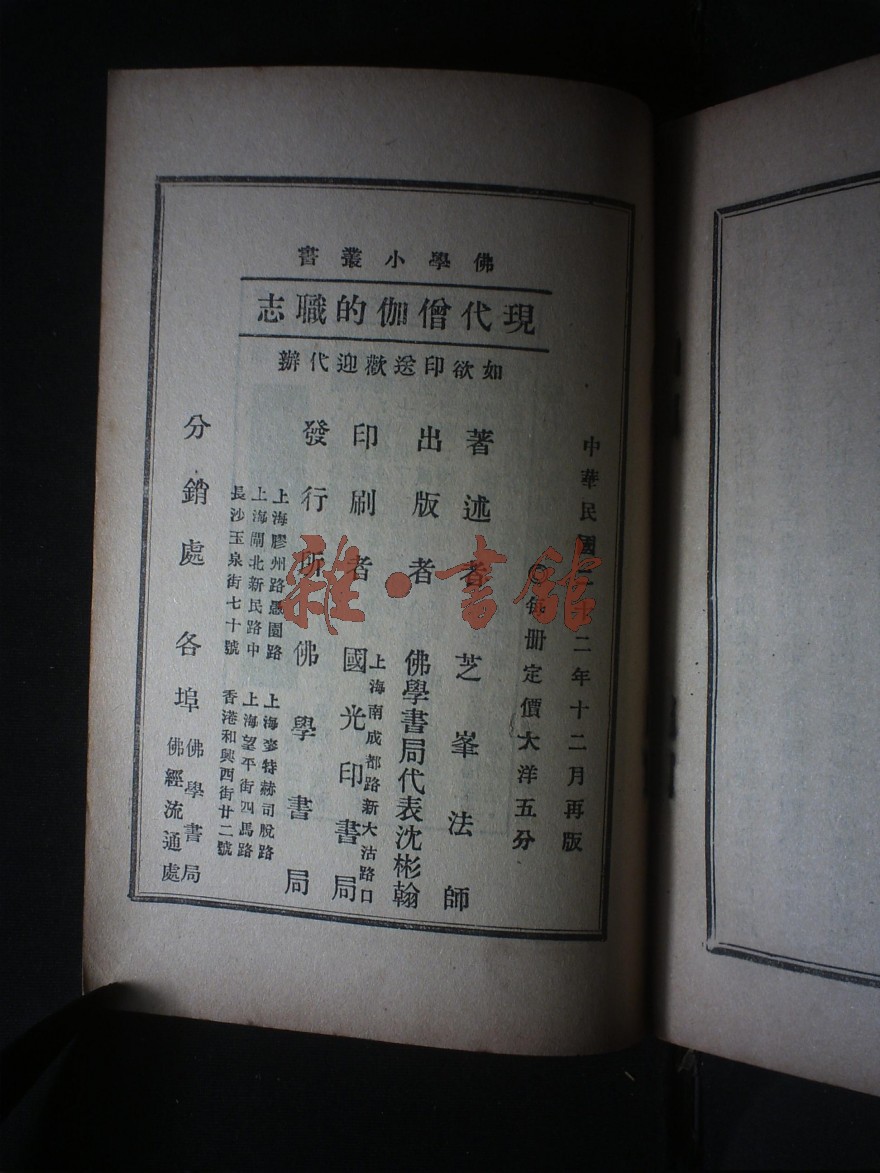 佛學小叢書
現代僧伽的職志
如欲印送歡迎代辦
中華民國二十二年十二月再版
◎每册定價大洋五分
著述者 芝峯法師
出版者 佛學書局代表沈彬翰
印刷者 國光印書局
上海南成都路新大沽路口
發行所 佛學書局
上海膠州路愚園路
上海閘北新民路中
長沙玉泉街七十號
上海麥特赫司脫路
上海望平街四馬路
香港和興西街廿二號
分銷處 各埠
佛學書局
佛經流通處
雜·書館